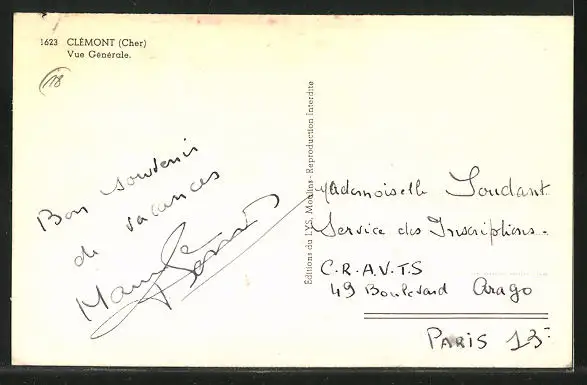 1623 CLÉMONT (Cher)
Vue Générale.
18
Bon souvenir
de vacances
Editions du LYS, Moulins - Reproduction interdite
Mademoiselle Soudant
Service des Inscriptions.
C.R.A.V.T.S
49 Boulevard Arago
PARIS 13